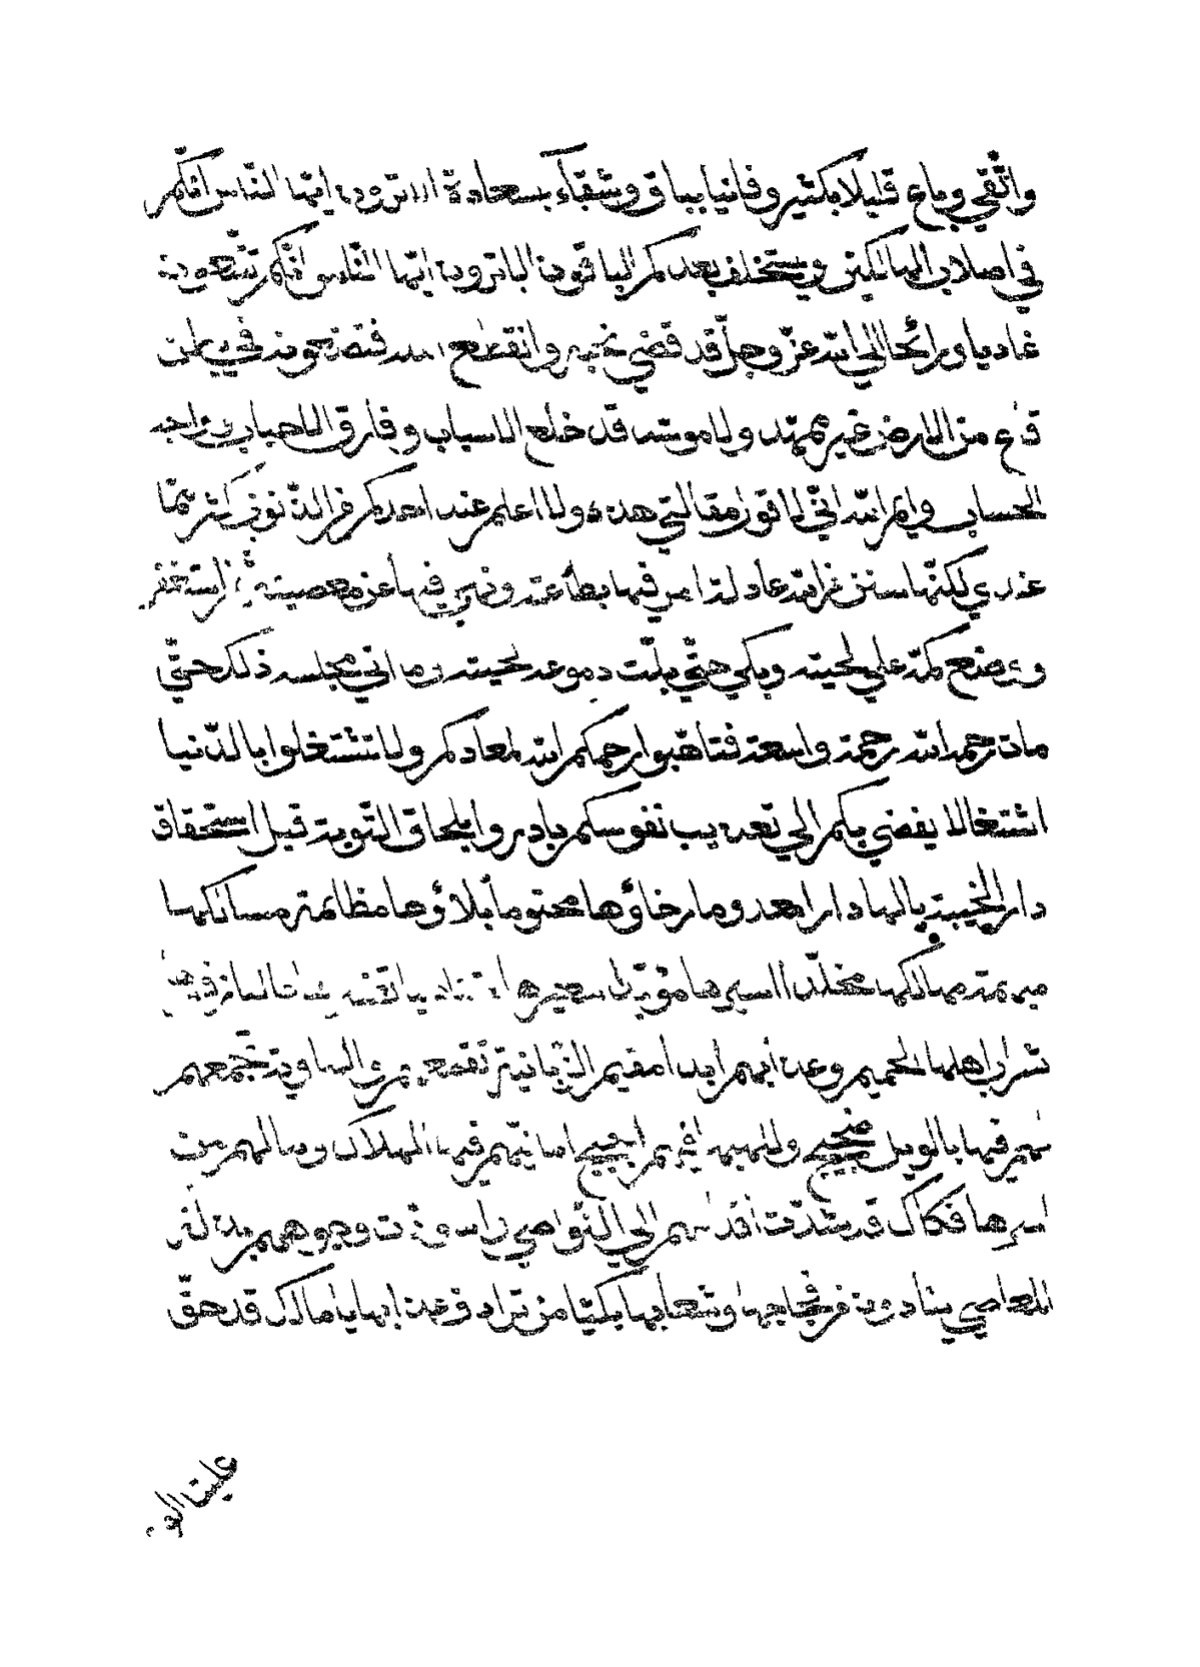 واتقي وباع قليلا بكثير وفانيا بباق وشقاء بسعادة الا ترون ايها الناس انكم
في اصلاب الهالكين ويستخلف بعدكم الباقون الا ترون ايها الناس انكم تشيعون
غاديا ورائحا الي الله عز وجل قد قضي نحبه وانقطع فتضعونه في بطن
من الارض غير ممهد ولا موسد قد خلع الاسباب وفارق الاحباب وواجه
الحساب وايم الله اني لا قول مقالتي هذه ولا اعلم عند احدكم من الذنوب اكثر مما
عندي لكنها سنن من الله عادلة امر فيها بطاعته ونهي فيها عن معصيته استغفر
ووضع كمه علي لحيته وبكي حتي بلت دموعه لحيته وما اني مجلسه ذلك حتي
مات رحمه الله رحمة واسعة فتاهبوا رحمكم الله لمعادكم ولا تشتغلوا بالدنيا
اشتغالا يفضي بكم الي تعذيب نفوسكم بادروا بلحاق التوبة قبل استحقاق
دار الخيبة يالها دارا معدوما رخاؤها محتوما بلاؤها مظلمة مسالكها
مبهمة مهالكها مخلدا اسيرها مؤبدا سعيرها
شراب اهلها الحميم وعذابهم ابدا مقيم الزبانية تقمعهم والهاوية تجمعهم
لهم فيها بالويل ضجيج وللهيبها فيهم اجيج امانيهم فيها الهلاك وما لهم من
اسرها فكاك قد شدت اقدامهم الي النواصي واسودت وجوههم بذلة
المعاصي ينادون من فجاجها وشعابها بكيا من ترادف عذابها يا مالك قد حق
علينا